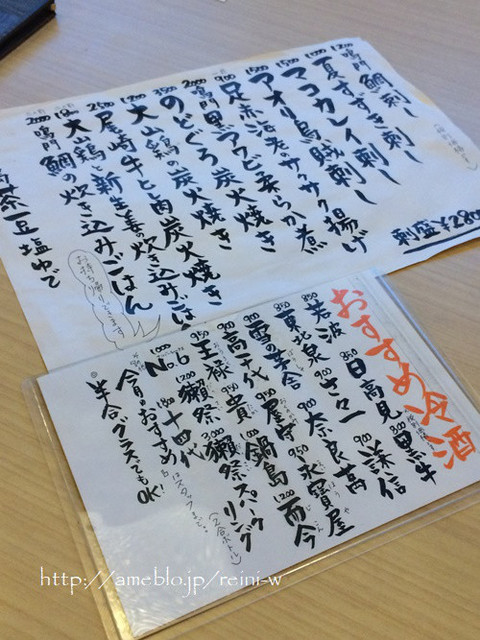 1200 鳴門 鯛刺し
1000 夏すずき刺し
1500 マコカレイ刺し
1500 アオリ烏賊刺し
900 足赤海老のサクサク揚げ
2000 鳴門黒アワビ柔らか煮
3500 のどぐろ炭火焼き
1200 大山鶏の炭火焼き
2500 尾崎牛もも肉炭火焼き
大山鶏と新生姜の炊き込みごはん
2000 鳴門 鯛の炊き込みごはん
茶豆塩ゆで
お持ち帰りできます
刺盛 ¥2800
おすすめ冷酒
日高見 黒牛
岩波 900 謙信
850 東北泉 900 奈良萬
850 雪の茅舎
900 高千代 950 屋守
950 王祿 950 貴 1100 鍋島 1200 而今
1000 No.6 1200 獺祭 3000 獺祭スパークリング
(2合ボトル)
十四代
今日のおすすめもはスタッフまで!
◎半合グラスでもOK!
http://ameblo.jp/reini-w